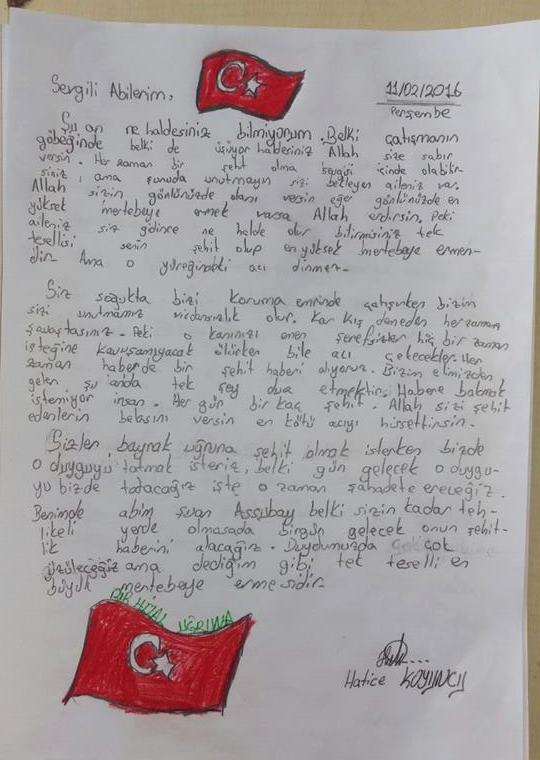 Sevgili Abilerim,
11/02/2016
Perşembe
Şu an ne haldesiniz bilmiyorum. Belki çatışmanın
göbeğinde belki de üşüyor haldesiniz Allah size sabır
versin. Her zaman bir şehit olma sevgisi içinde olabilir-
siniz, ama şunuda unutmayın sizi bekleyen aileniz var.
Allah sizin gönlünüzde olanı versin eğer gönlünüzde en
yüksek mertebeye ermek varsa Allah erdirsin. Peki
aileniz siz gidince ne halde olur bilirmisiniz tek
tesellisi senin şehit olup en yüksek mertebeye ermen-
dir. Ama o yüreğindeki acı dinmez.
Siz soğukta bizi koruma emrinde çatışırken bizim
sizi unutmamız vicdansızlık olur. Kar kış demeden her zaman
savaştasınız. Peki o kanınızı emen şerefsizler hiç bir zaman
isteğine kavuşamıyacak ölürken bile acı çekecekler. Her
zaman haberde bir şehit haberi alıyoruz. Bizim elimizden
gelen şu anda tek şey dua etmektir. Habere bakmak
istemiyor insan. Her gün bir kaç şehit. Allah sizi şehit
edenlerin belasını versin en kötü acıyı hissettirsin.
Sizler, bayrak uğruna şehit olmak isterken bizde
o duyguyu tatmak isteriz, belki gün gelecek o duygu-
yu bizde tadacağız işte o zaman şahadete ereceğiz.
Benimde abim şuan Assubay belki sizin kadar teh-
likeli yerde olmasada birgün gelecek onun şehit-
lik haberini alacağız. Duyduğumuzda çok
üzüleceğiz ama dediğim gibi tek teselli en
büyük mertebeye ermesidir.
BİR HİLAL UĞRUNA
Hatice